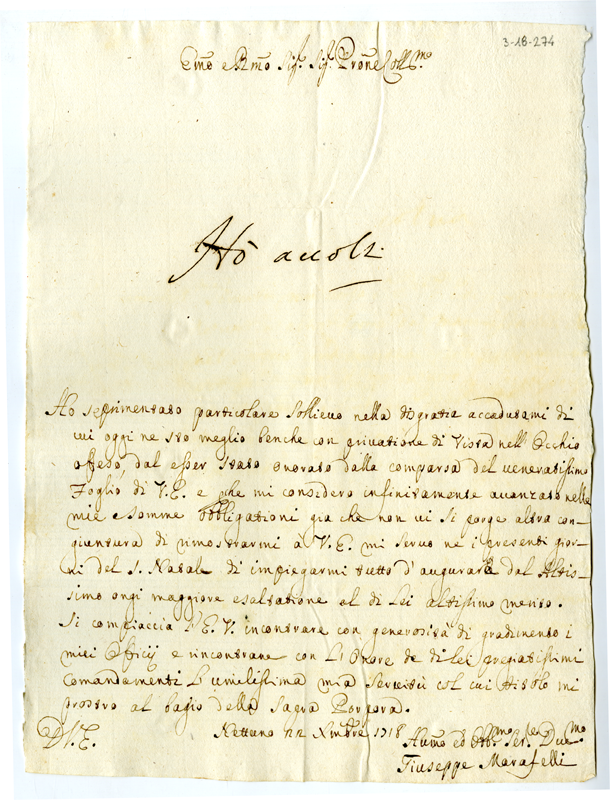 3-18-274
Emo e Rmo Sig.r Sig.r Prone Coll.mo
Hò accolt.
Ho seprimentato particolare sollievo nella disgratia accadutami di
cui oggi ne sto meglio benche con privatione di Vista nell'Occhio
offeso, dal esser stato onorato dalla comparsa del veneratissimo
Foglio di V.E. e che mi considero infinitamente avanzato nelle
mie e somme obbligationi gia che non vi si porge altra con-
giuntura di rimostrarmi à V.E. mi servo ne i presenti gior-
ni del S. Natale di impiegarmi tutto d'augurarle dal Altis-
simo ongi maggiore esaltatione al di Lei altissimo merito.
Si compiaccia l'E.V. incontrare con generosità di gradimento i
miei Officij e rincontrane con L'Onore de di lei pregiatissimi
Comandamenti L'umilissima mia Servitù col cui titolo mi
prostro al bagio della Sagra Porpora.
D V.E.
Nettuno 22 Xmbre 1718
Humo ed Obb.mo Ser.re Du.mo
Giuseppe Marafelli